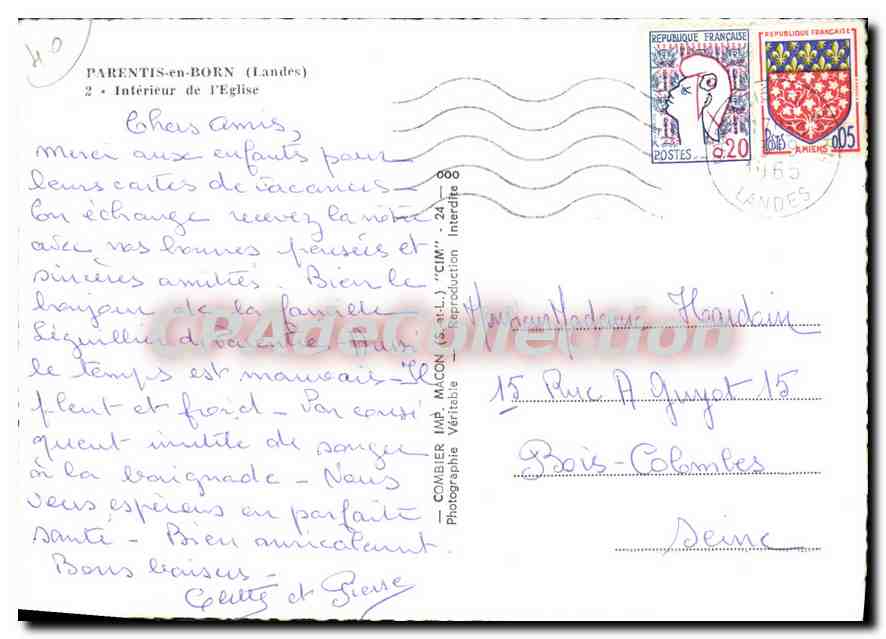 40
PARENTIS-en-BORN (Landes)
2 - Intérieur de l'Eglise
Chers Amis,
Merci aux enfants pour
leurs cartes de vacances -
En échange recevez la nôtre
avec nos bonnes pensées et
sincères amitiés. Bien le
bonjour de la famille
de Parentis.
le temps est mauvais - Il
pleut et froid - Par consé
quent inutile de songer
à la baignade - Nous
vous espérons en parfaite
santé - Bien amicalement.
Bons baisers -
et Pierre
— COMBIER IMP. MACON (S.-et-L.) "CIM" - 24 —
Photographie Véritable — Reproduction Interdite
REPUBLIQUE FRANÇAISE
POSTES 0,20
REPUBLIQUE FRANÇAISE
POSTES AMIENS 0,05
1965
LANDES
CPAdeCollection.com
Monsieur Madame Hordain
15 Rue A Guyot 15
Bois-Colombes
Seine